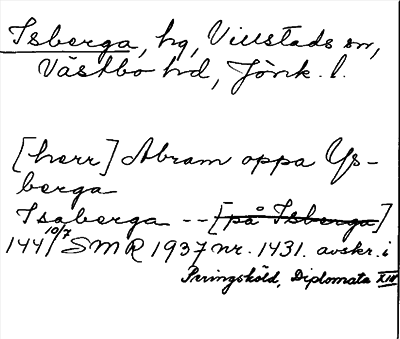 Isberga, hg, Villstads sn,
Västbo hd, Jönk. l.
[herr] Abram oppa Ys-
berga
Isaberga -- [på Isberga]
1441 10/7 SMR 1937 nr. 1431. avskr. i
Peringsköld, Diplomata XIV